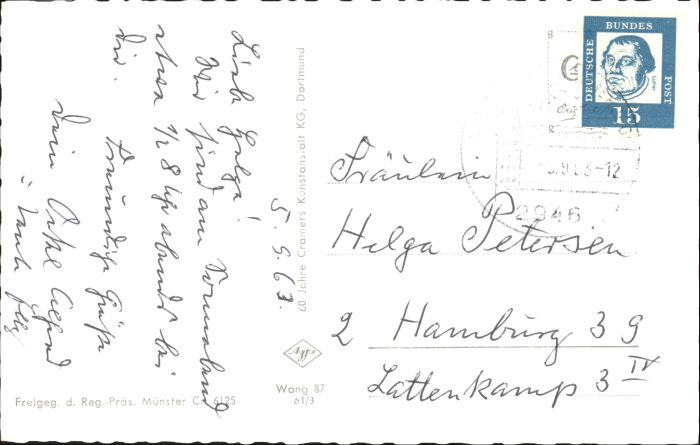 Liebe Helga!
Wir sind am Sonnabend
etwa 1/2 8 Uhr abends bei
dir.
Freundliche Grüße
Dein Onkel Alfred
u. Tante
5. 9. 63.
60 Jahre Cramers Kunstanstalt KG, Dortmund
DEUTSCHE
BUNDES
POST
Luther
15
-12
2946
Fräulein
Helga Petersen
2 Hamburg 39
Lattenkamp 3 IV
Wang 87
61/3
Freigeg. d. Reg.-Präs. Münster Cr. 6125